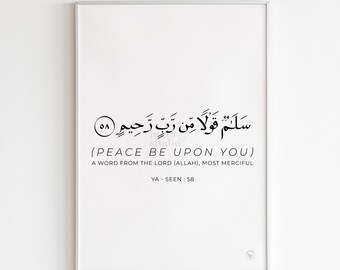 سَلَٰمٌ قَوْلًا مِّن رَّبٍّ رَّحِيمٍ ٥٨
(PEACE BE UPON YOU)
A WORD FROM THE LORD (ALLAH), MOST MERCIFUL
YA - SEEN : 58